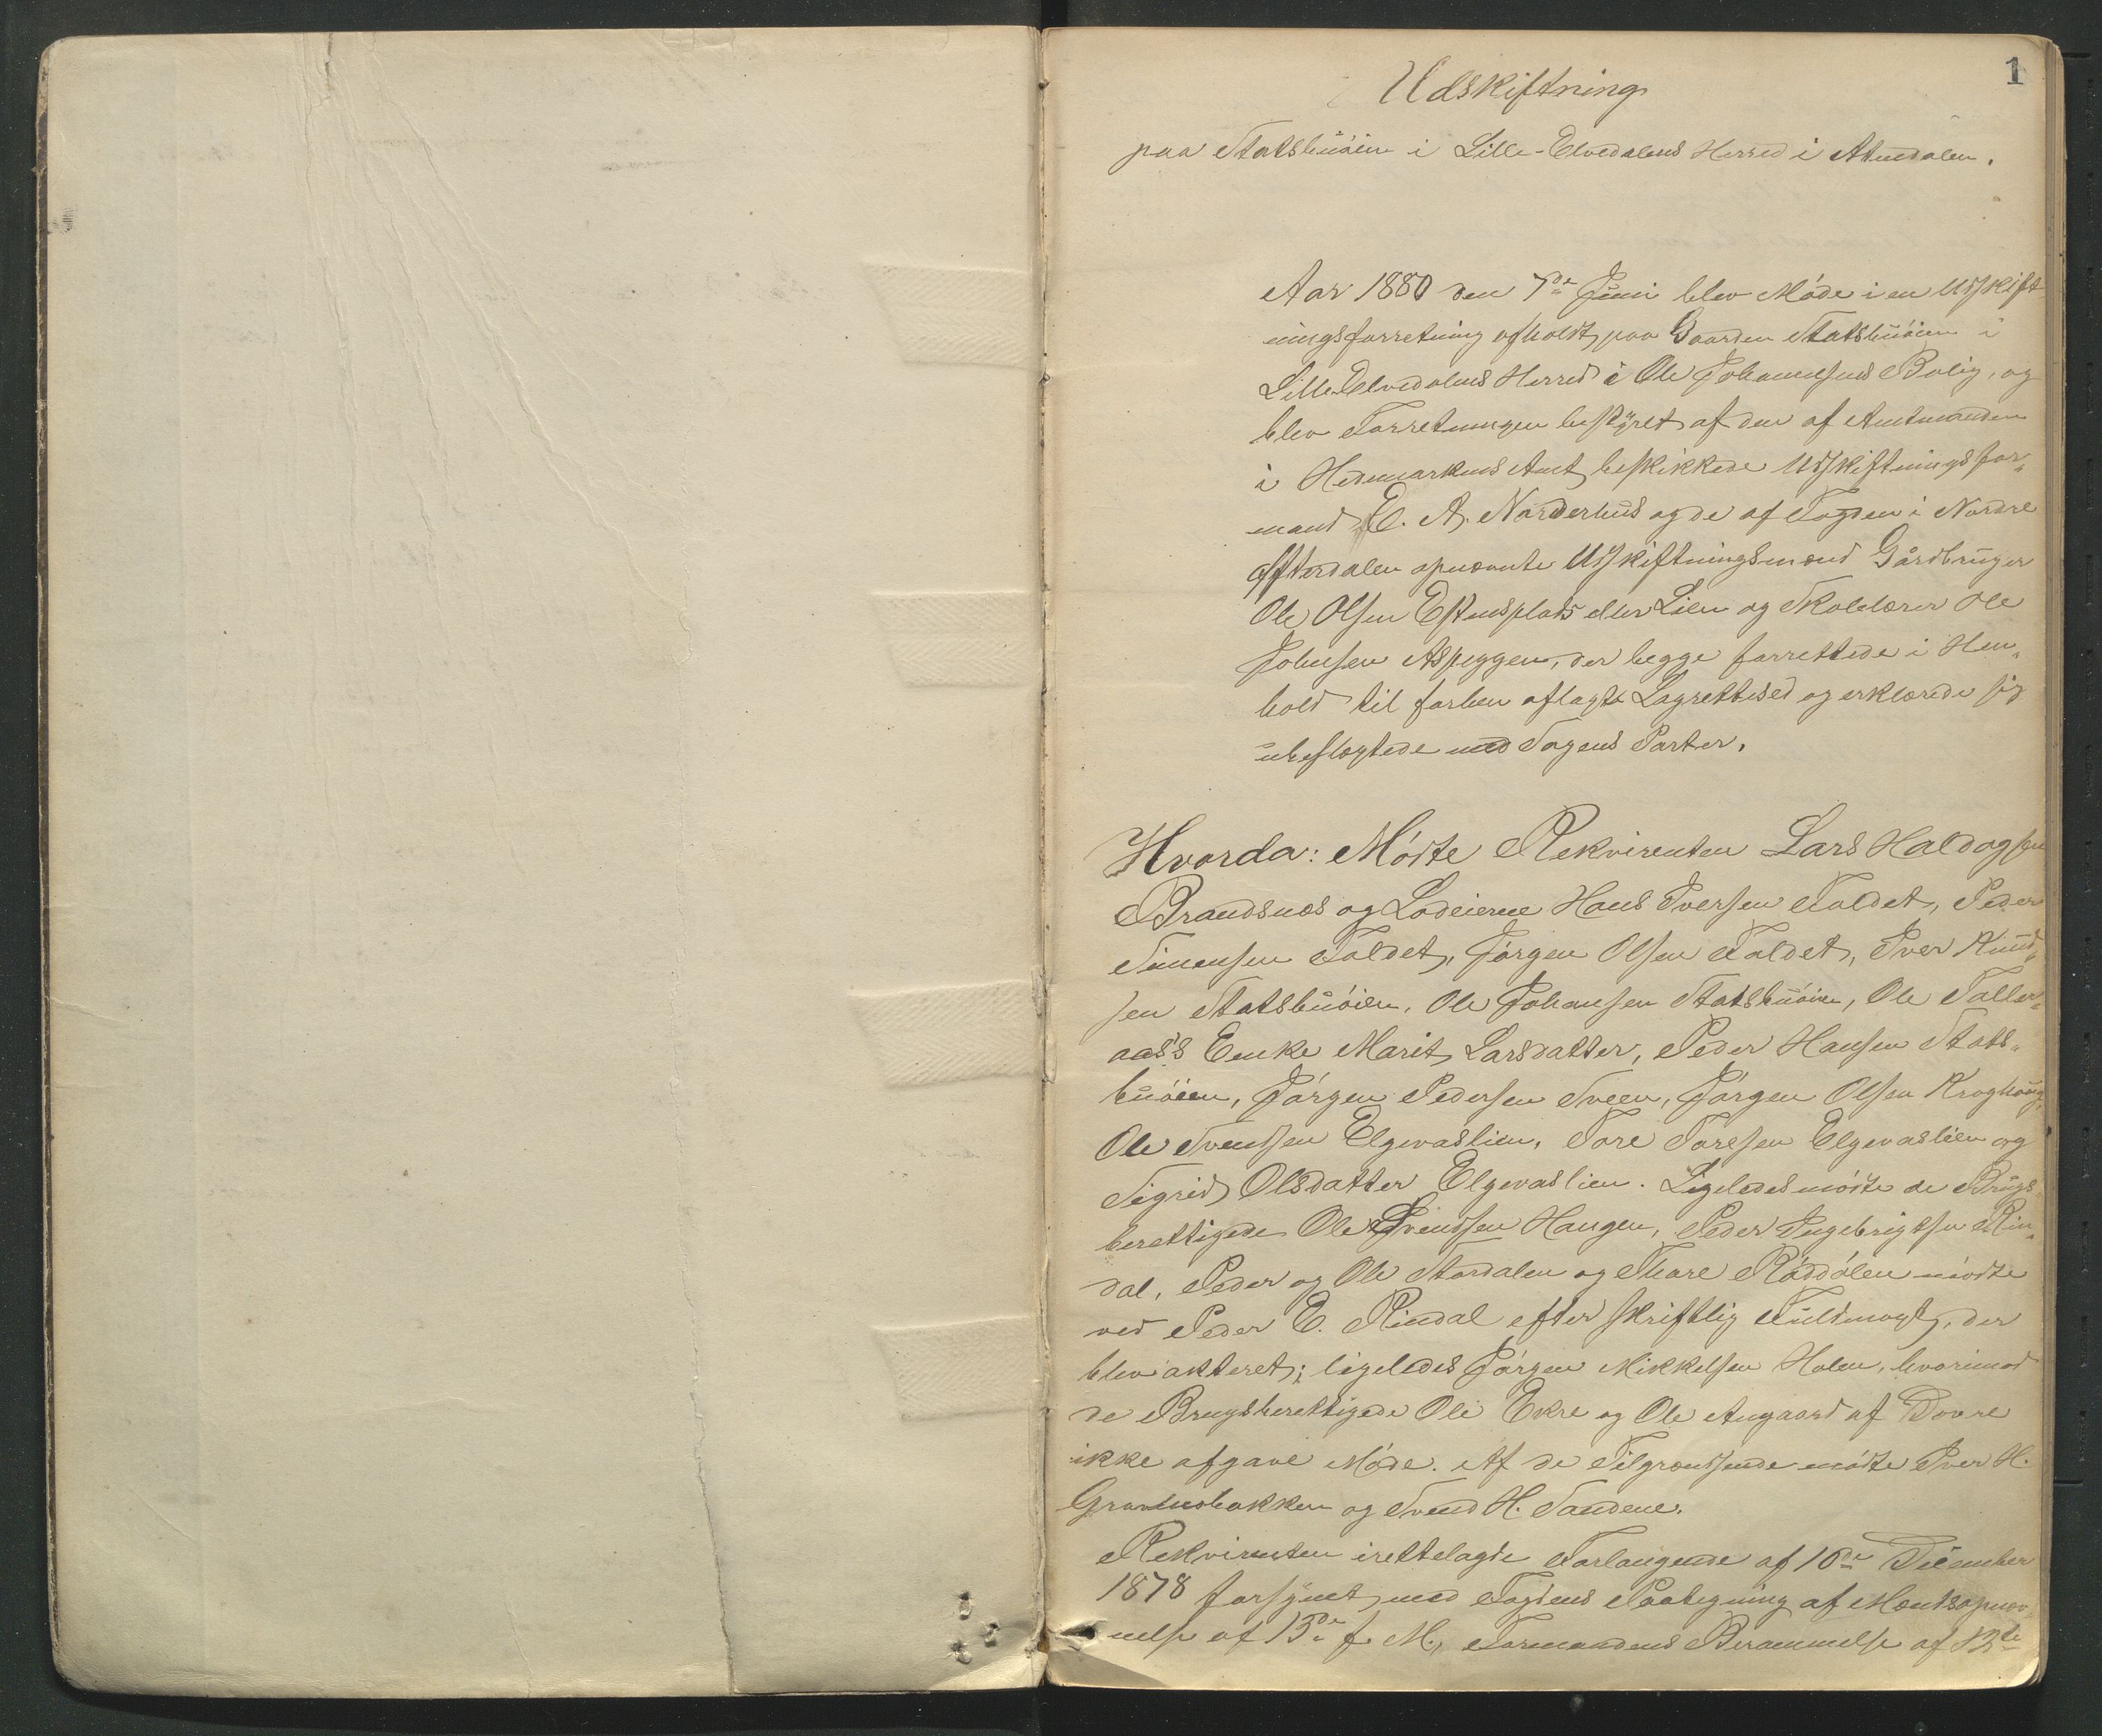 1
Udskiftning
paa Statsbuøien i Lille-Elvedalens Herred i Atnedalen.
Aar 1880 den 7de Juni blev Møde i en Udskift
ningsforretning afholdt paa Gaarden Statsbuøien i
Lille-Elvedalens Herred i Ole Johannesens Bolig, og
blev Forretningen bestyret af den af Amtmanden
i Hedemarkens Amt beskikkede Udskiftningsfor„
mand E. A. Norderhus og de af Fogden i Nordre
Østerdalen opnævnte Udskiftningsmænd Gårdbruger
Ole Olsen Estensplads eller Lien og Skolelærer Ole
Johnsen Aspeggen, der begge forrettede i Hen„
hold til forhen aflagte Lagrettesed og erklærede sig
ubeslægtede med Sagens Parter.
Hvorda: Mødte Rekvirenten Lars Haldogsen
Brandsnæs og Lodeierne Hans Iversen Foldet, Peder
Simensen Foldet, Jørgen Olsen Foldet, Iver Knud„
sen Statsbuøien, Ole Johansen Statsbuøien, Ole Foller„
aas's Enke Marit Larsdatter, Peder Hansen Stats„
buøien, Jørgen Pedersen Sveen, Jørgen Olsen Kroghaug,
Ole Svendsen Elgevaslien, Tore Toresen Elgevaslien og
Sigrid Olsdatter Elgevaslien. Ligeledes mødte de Brugs
berettigede Ole Svendsen Haugen, Peder Ingebrigtsen Rin„
dal, Peder og Ole Stordalen og Thore Røddølen mødte
ved Peder E. Rindal efter skriftlig Fuldmagt, der
blev akteret; ligeledes Jørgen Mikkelsen Holen, hvorimod
de Brugsberettigede Ole Ekre og Ole Angaard af Dovre
ikke afgave Møde. Af de Tilgrændsende mødte Iver H.
Gravhusbakken og Svend H. Sandene.
Rekvirenten irettelagde Forlangende af 10de December
1878 forsynet med Fogdens Paategning af Mændsopnæv„
nelse af 13de f. M., Formandens Berammelse af